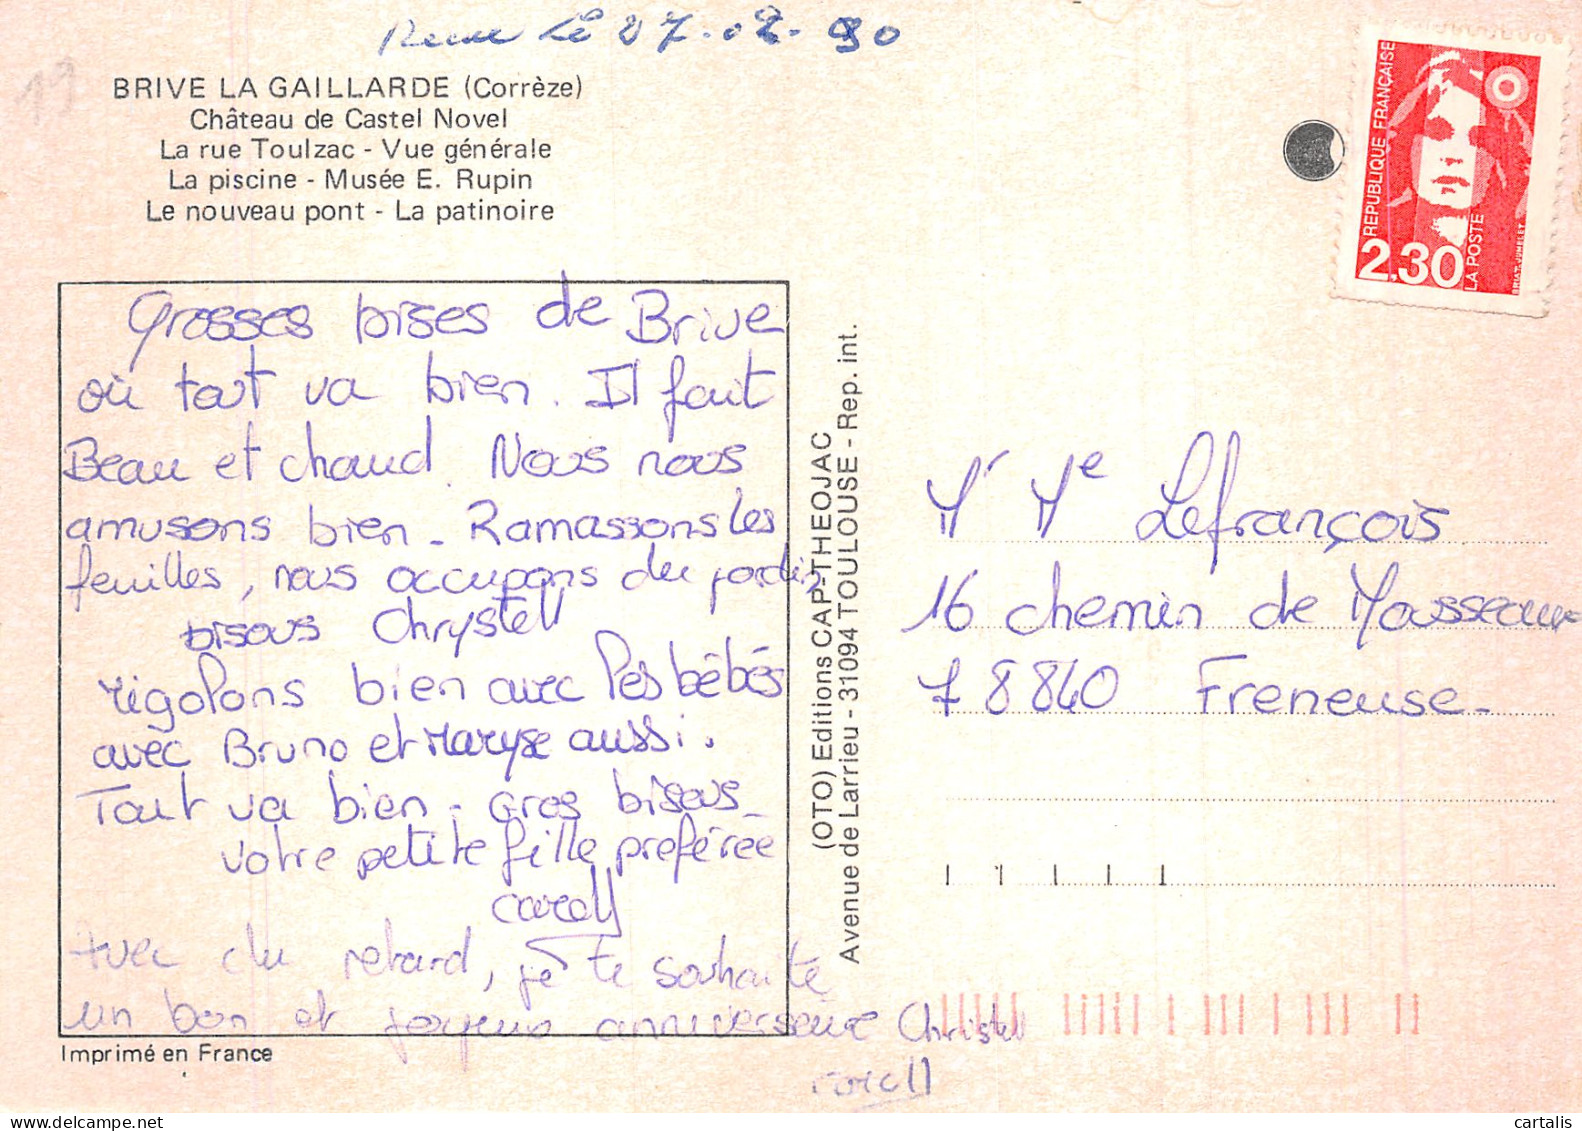 Recue Le 27.02.90
19
BRIVE LA GAILLARDE (Corrèze)
Château de Castel Novel
La rue Toulzac - Vue générale
La piscine - Musée E. Rupin
Le nouveau pont - La patinoire
REPUBLIQUE FRANÇAISE
2,30
LA POSTE
BRIAT. JUMELET
Grosses bises de Brive
où tout va bien. Il fait
Beau et chaud. Nous nous
amusons bien - Ramassons les
feuilles, nous occupons du jardin
bisous Chrystell
rigolons bien avec les bébés
avec Bruno et Maryse aussi.
Tout va bien - Gros bisous -
votre petite fille préférée
Caroll
Avec du retard, je te souhaite
un bon et joyeux anniverseire Christell
Caroll
Imprimé en France
(OTO) Editions CAP-THEOJAC
Avenue de Larrieu - 31094 TOULOUSE - Rep. int.
Mr Me Lefrançois
16 chemin de Masseaux
78840 Freneuse -
cartalis